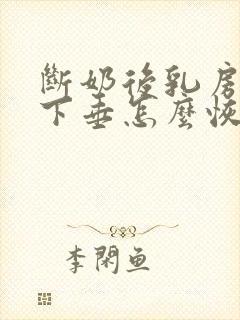 斷奶後乳房
下垂怎麼恢
李閑魚